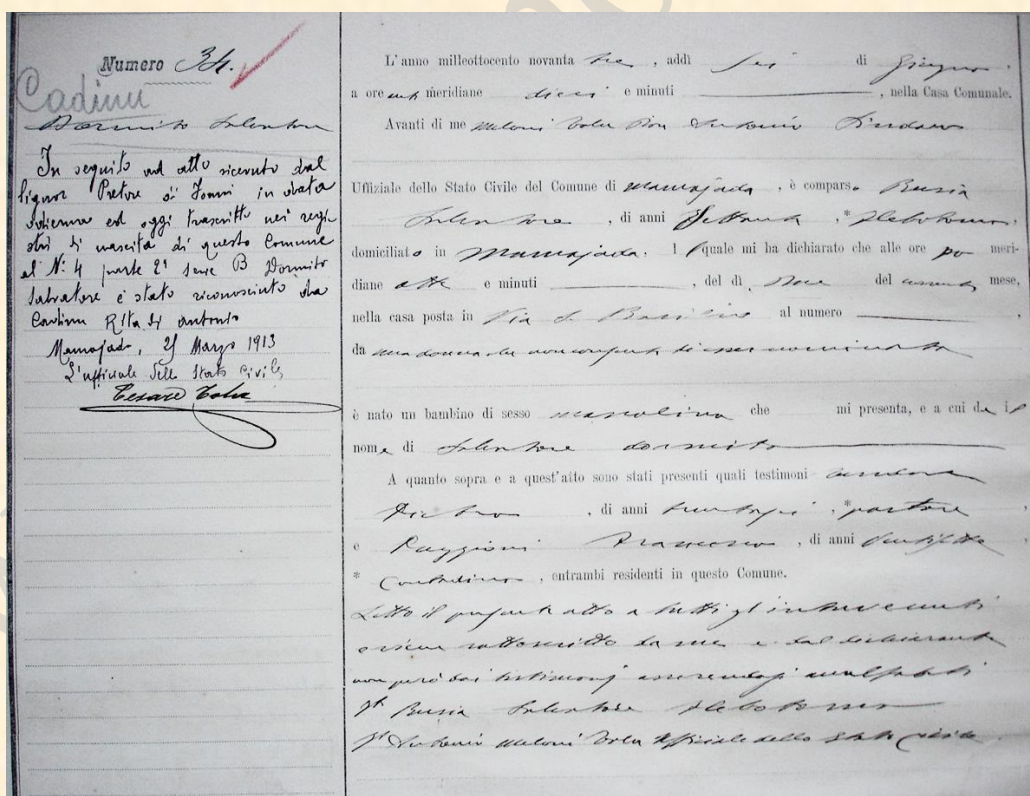 Numero 34.
Cadinu
Dormito Salvatore
In seguito ad atto ricevuto dal
Signor Pretore di Fonni in data
odierna ed oggi trascritto nei regi
stri di nascita di questo Comune
al N: 4 parte 2ª serie B Dormito
Salvatore è stato riconosciuto da
Cadinu Rita di Antonio
Mamojada, 25 Marzo 1913
L'ufficiale dello Stato Civile
Cesare Tola
L'anno milleottocento novanta tre, addì sei di Giugno,
a ore ant meridiane dieci e minuti , nella Casa Comunale.
Avanti di me Meloni Tola Antonio Sindaco
Uffiziale dello Stato Civile del Comune di Mamojada, è comparso Busia
Salvatore, di anni settanta, * flebotomo
domiciliato in Mamojada. l quale mi ha dichiarato che alle ore po meri-
diane otto e minuti , del dì del corrente mese,
nella casa posta in Via S. Basilio al numero
da una donna che non consente di esser nominata
è nato un bambino di sesso mascolino che mi presenta, e a cui da il
nome di Salvatore dormito
A quanto sopra e a quest'atto sono stati presenti quali testimoni
Pietro, di anni, * pastore,
e Puggioni Francesco, di anni ventisette,
* Contadino, entrambi residenti in questo Comune.
Letto il presente atto a tutti gl'intervenuti
e viene sottoscritto da me e dal dichiarante
non però dai testimonj essendosi analfabeti
Busia Salvatore flebotomo
Antonio Meloni Tola Uffiziale dello Stato Civile